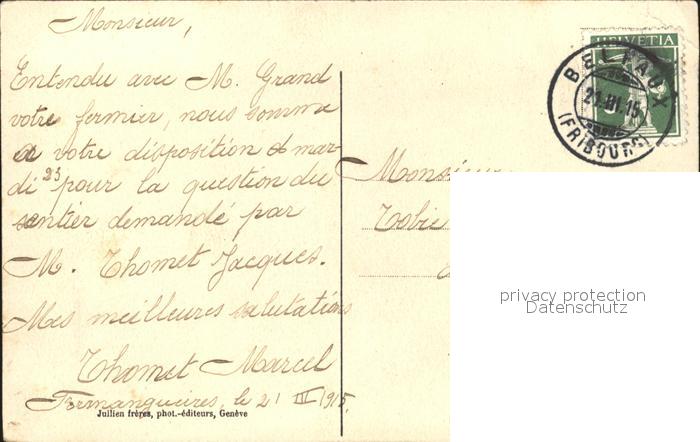 Monsieur,
Entendu avec M. Grand
votre fermier, nous somme
a votre disposition mar-
di 23 pour la question du
sentier demandé par
M. Thomet Jacques.
Mes meilleures salutations
Thomet Marcel
le 21 III 1915.
Jullien frères, phot.-éditeurs, Genève
HELVETIA
BELFAUX
III.15
(FRIBOURG)
Monsieur
Tobie
privacy protection
Datenschutz